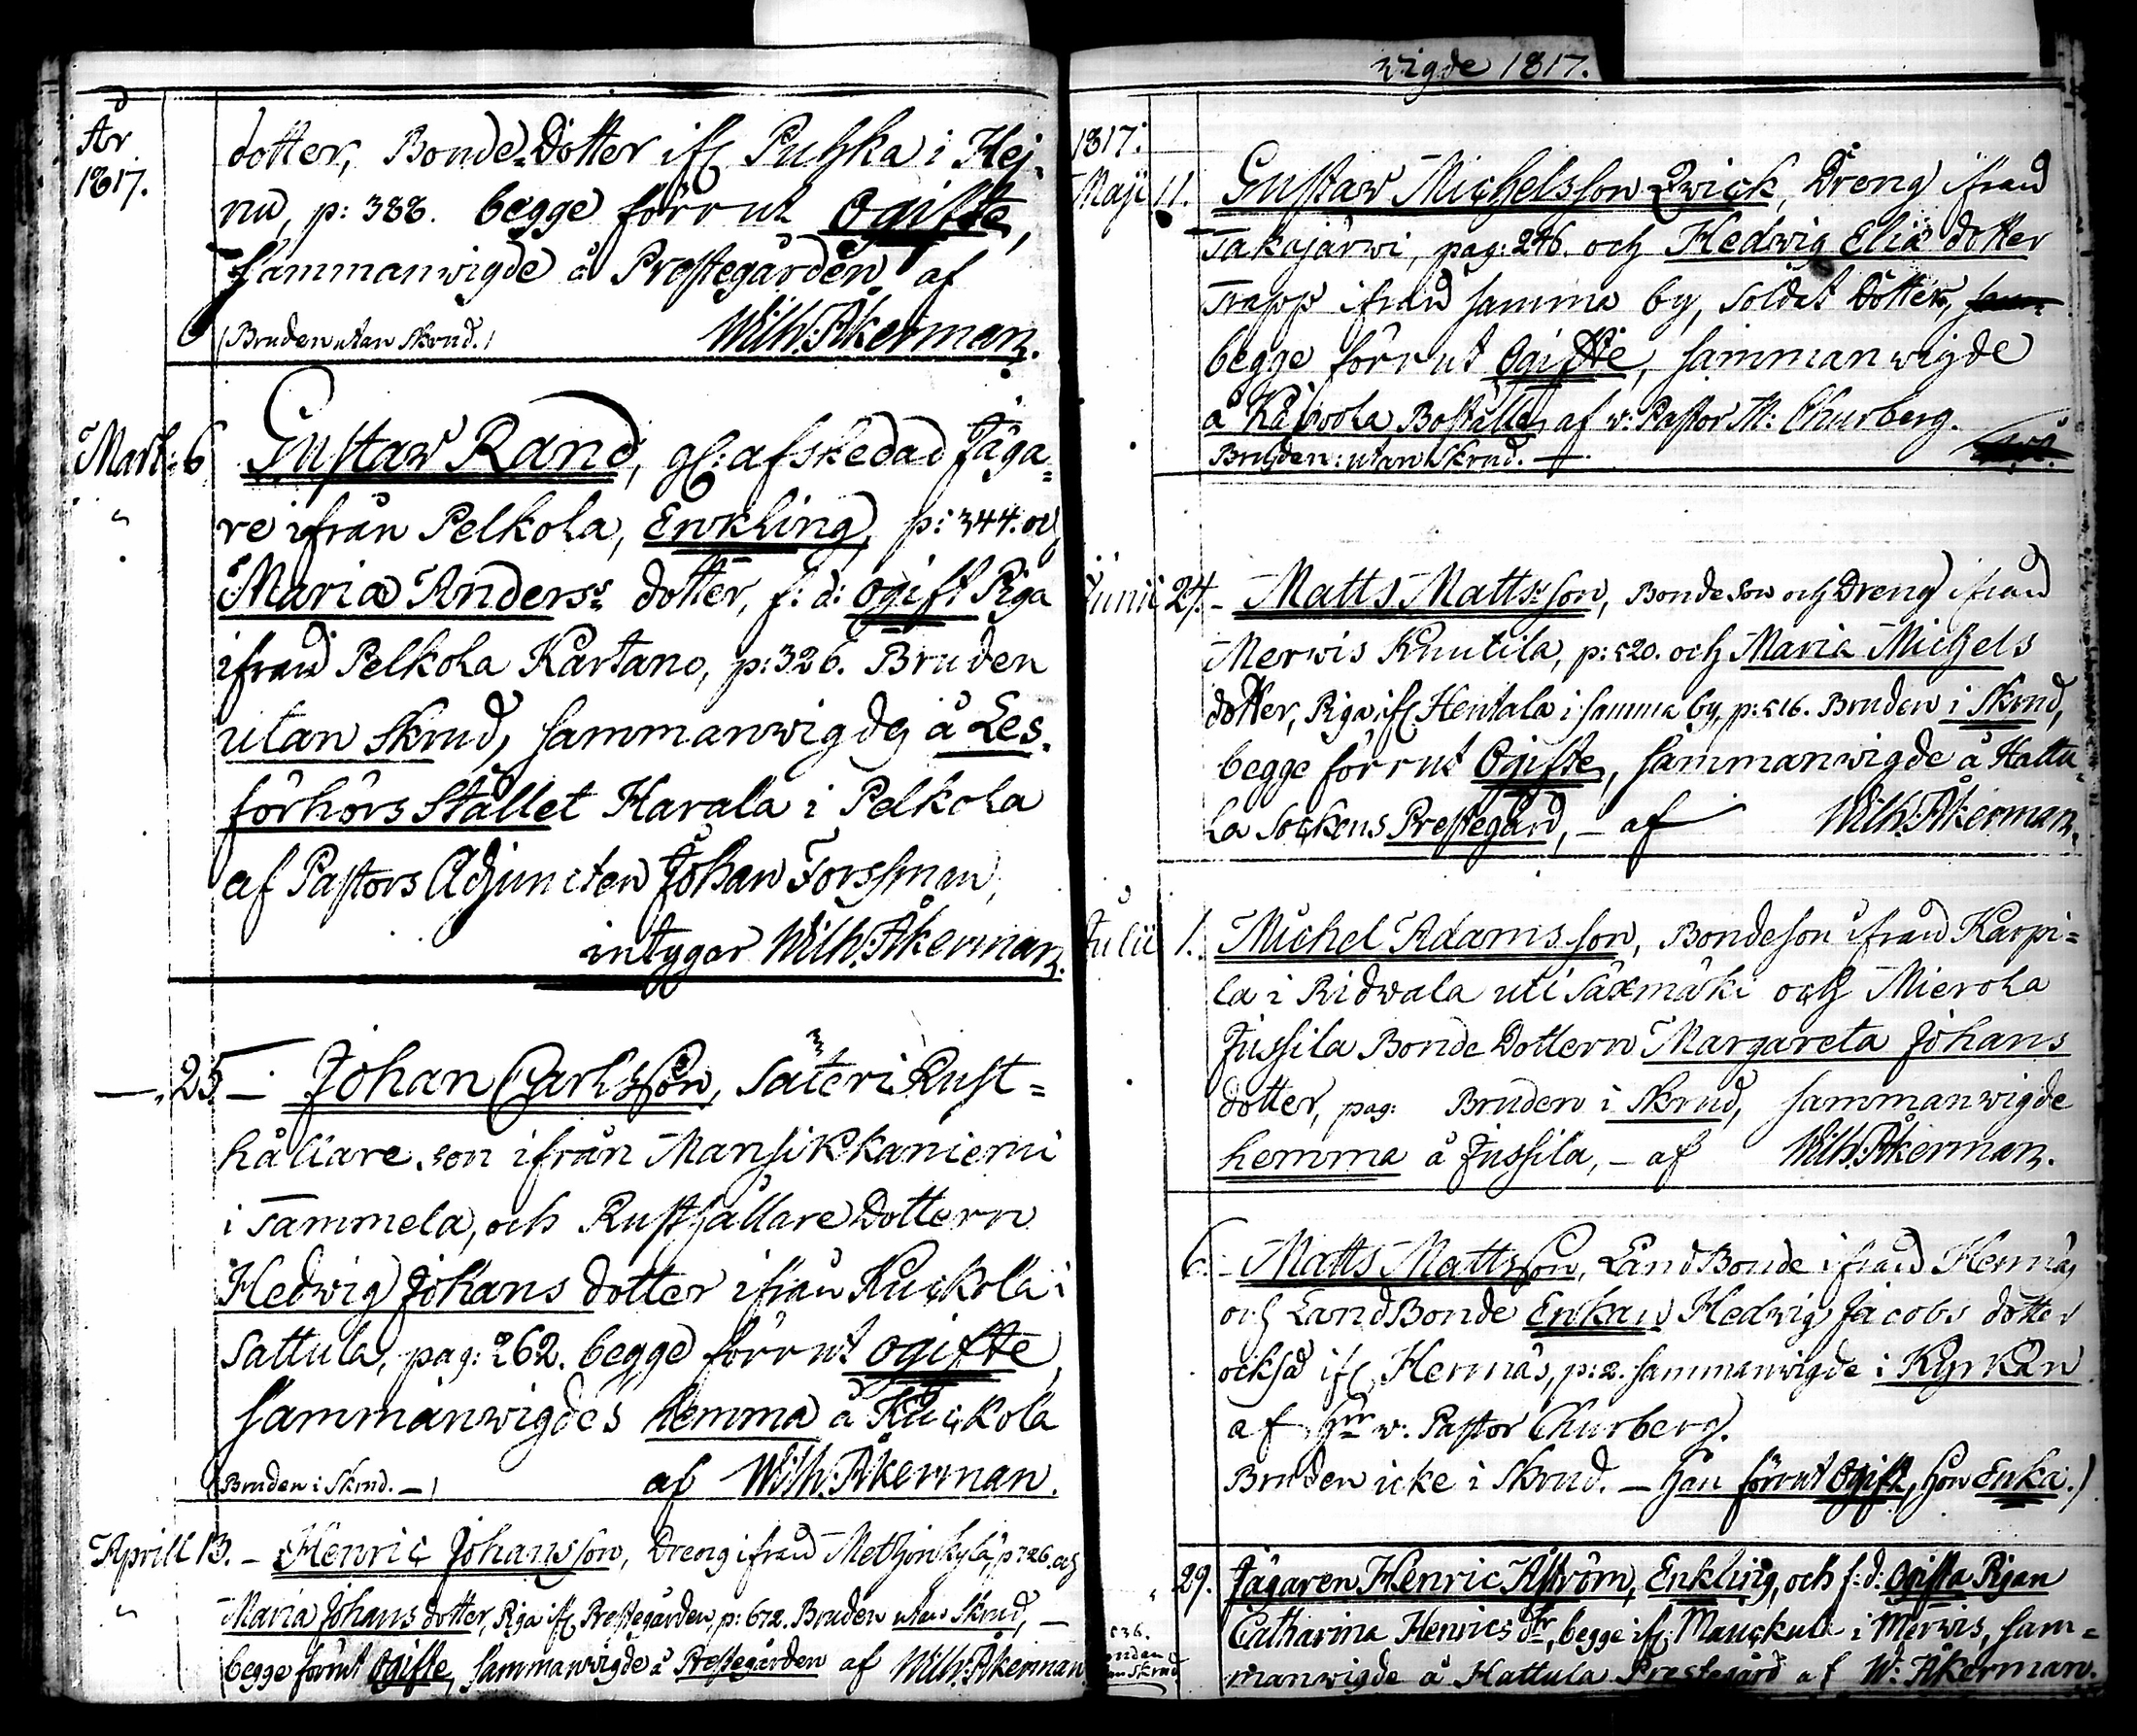 År
1817.
dotter, Bonde-Dotter ifr. Puhka i Hej-
nu, p: 388. begge förrut Ogifte,
sammanwigde å Prestegården, af
(Bruden utan Skrud.) Wilh. Åkerman.
Mart: 6 Gustaw Rand, gl: afskedad Jäga-
re ifrån Pelkola, Enkling, p: 344. och
Maria Anders dotter, f: d: ogift Piga
ifrån Pelkola Kartano, p: 326. Bruden
utan Skrud, sammanwigde å Les-
förhörs Stället Harala i Pelkola
af Pastors Adjuncten Johan Forssman,
intygar Wilh. Åkerman.
—. 25 – Johan Carlsson, Säteri Rust=
hållare son ifrån Mansikkaniemi
i Tammela, och Rusthållare Dottern
Hedwig Johans dotter ifrån Kuckola i
Sattula, pag: 262. begge förrut ogifte
sammanwigdes hemma å Kuckola
(Bruden i Skrud. —) af Wilh. Åkerman.
Aprill 13. – Henric Johansson, Dreng ifrån Metzänkylä, p: 726. och
Maria Johans dotter, Piga ifr. Prestegården, p: 672. Bruden utan Skrud, —
begge förrut Ogifte, sammanwigde å Prestegården af Wilh. Åkerman
wigde 1817.
1817.
Maji 11. Gustaw Michelsson Qwick, Dreng ifrån
Takajärwi, pag: 246. och Hedwig Eliæ dotter
Trapp ifrån samma by, Soldat Dotter,
begge förrut Ogifte, sammanwigde
å Boställe, af v: Pastor M: Churberg.
Bruden: utan Skrud. —
Junii 24. – Matts Mattsson, Bondeson och Dreng ifrån
Merwis Knutila, p: 520. och Maria Michels
dotter, Piga ifr. Hentala i samma by, p: 516. Bruden i Skrud,
begge förrut Ogifte, sammanwigde å Hattu-
la Sockens Prestegård, – af Wilh. Åkerman.
Julii 1. Michel Adamsson, Bondeson ifrån Karpi=
la i Ridwala uti Säxmäki och Mierola
Jussila Bonde Dottern Margareta Johans
dotter, pag: Bruden i Skrud, sammanwigde
hemma å Jussila, – af Wilh. Åkerman.
6. – Matts Mattsson, Land Bonde ifrån Hernäs
och Land Bonde Enkan Hedwig Jacobs dotter
också ifr. Hernäs, p: 2. sammanwigde i Kyrkan
af Hrr v: Pastor Churberg.
Bruden icke i Skrud. – han förrut Ogift, hon Enka.)
29. Jägaren Henric Åström, Enkling, och f: d: Ogifta Pigan
Catharina Henrics dr, begge ifr. Mauckula i Merwis, sam=
manwigde å Hattula Prestegård af W: Åkerman.